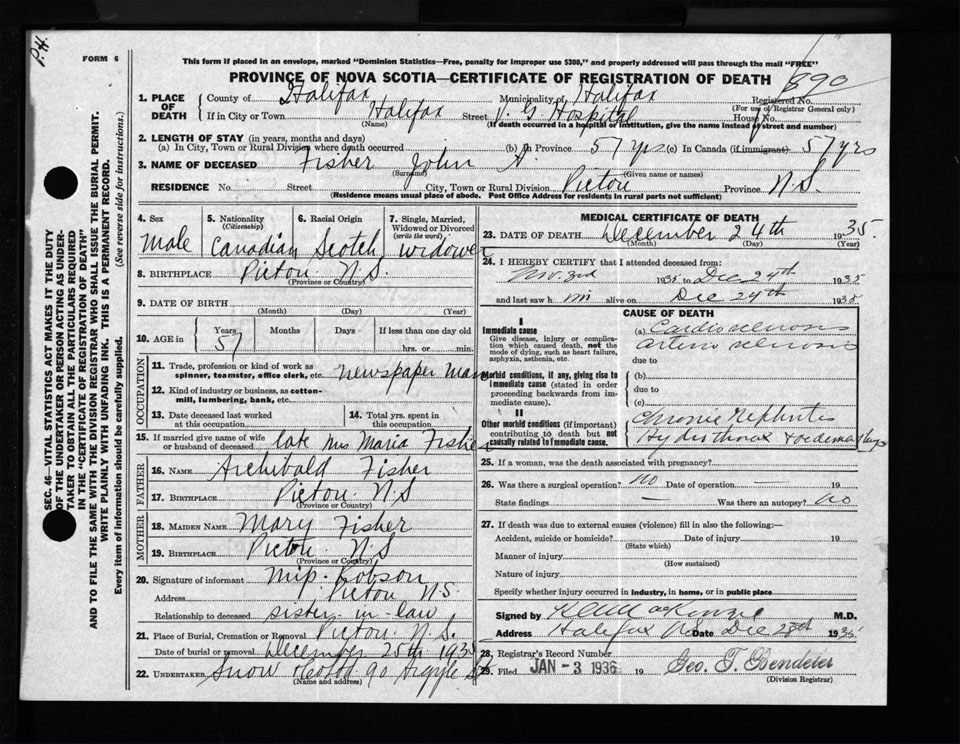 P.H.
FORM 6
This form if placed in an envelope, marked "Dominion Statistics—Free, penalty for improper use $300," and properly addressed will pass through the mail "FREE"
PROVINCE OF NOVA SCOTIA—CERTIFICATE OF REGISTRATION OF DEATH
890
1. PLACE OF DEATH County of Halifax Municipality of Halifax Registered No.
(For use of Registrar General only)
If in City or Town Halifax Street V. G. Hospital House No.
(Name) (If death occurred in a hospital or institution, give the name instead of street and number)
2. LENGTH OF STAY (in years, months and days)
(a) In City, Town or Rural Division where death occurred (b) In Province 57 yrs (c) In Canada (if immigrant) 57 yrs
3. NAME OF DECEASED Fisher John A.
(Surname) (Given name or names)
RESIDENCE No. Street City, Town or Rural Division Pictou Province N.S.
(Residence means usual place of abode. Post Office Address for residents in rural parts not sufficient)
4. Sex Male
5. Nationality (Citizenship) Canadian
6. Racial Origin Scotch
7. Single, Married, Widowed or Divorced (write the word) Widower
8. BIRTHPLACE Pictou N.S.
(Province or Country)
9. DATE OF BIRTH
(Month) (Day) (Year)
10. AGE in Years 57 Months Days If less than one day old hrs. or min.
OCCUPATION
11. Trade, profession or kind of work as spinner, teamster, office clerk, etc. Newspaper Man
12. Kind of industry or business, as cotton-mill, lumbering, bank, etc.
13. Date deceased last worked at this occupation
14. Total yrs. spent in this occupation
15. If married give name of wife or husband of deceased late Mrs Maria Fisher
FATHER
16. NAME Archibald Fisher
17. BIRTHPLACE Pictou N.S
(Province or Country)
MOTHER
18. MAIDEN NAME Mary Fisher
19. BIRTHPLACE Pictou N.S
(Province or Country)
20. Signature of informant Robson
Address Pictou N.S.
Relationship to deceased sister-in-law
21. Place of Burial, Cremation or Removal Pictou N.S.
Date of burial or removal December 25th 1935
22. UNDERTAKER Snow 90 Argyle St
(Name and address)
MEDICAL CERTIFICATE OF DEATH
23. DATE OF DEATH December 24th 1935.
(Month) (Day) (Year)
24. I HEREBY CERTIFY that I attended deceased from:
Nov. 1935 to Dec 24th 1935
and last saw him alive on Dec 24th 1935
CAUSE OF DEATH
I
Immediate cause
Give disease, injury or complication which caused death, not the mode of dying, such as heart failure, asphyxia, asthenia, etc.
(a)
due to
Morbid conditions, if any, giving rise to immediate cause (stated in order proceeding backwards from immediate cause).
(b)
due to
(c)
II
Other morbid conditions (if important) contributing to death but not causally related to immediate cause.
Chronic Nephritis
Hydrothorax + oedema
25. If a woman, was the death associated with pregnancy?
26. Was there a surgical operation? no Date of operation — 19
State findings — Was there an autopsy? no
27. If death was due to external causes (violence) fill in also the following:—
Accident, suicide or homicide? Date of injury 19
(State which)
Manner of injury
(How sustained)
Nature of injury
Specify whether injury occurred in industry, in home, or in public place
Signed by M.D.
Address Halifax NS Date Dec 1935
28. Registrar's Record Number
29. Filed JAN - 3 1936 19 Geo. T. Bendeier
(Division Registrar)
SEC. 46—VITAL STATISTICS ACT MAKES IT THE DUTY OF THE UNDERTAKER OR PERSON ACTING AS UNDERTAKER TO OBTAIN ALL THE PARTICULARS REQUIRED IN THE "CERTIFICATE OF REGISTRATION OF DEATH" AND TO FILE THE SAME WITH THE DIVISION REGISTRAR WHO SHALL ISSUE THE BURIAL PERMIT.
WRITE PLAINLY WITH UNFADING INK. THIS IS A PERMANENT RECORD.
Every item of information should be carefully supplied. (See reverse side for instructions.)